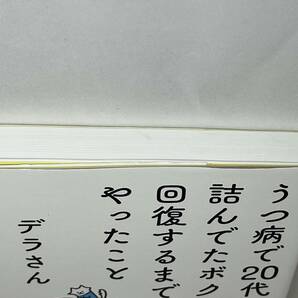 うつ病で20代
詰んでたボク
回復するまで
やったこと
デラさん